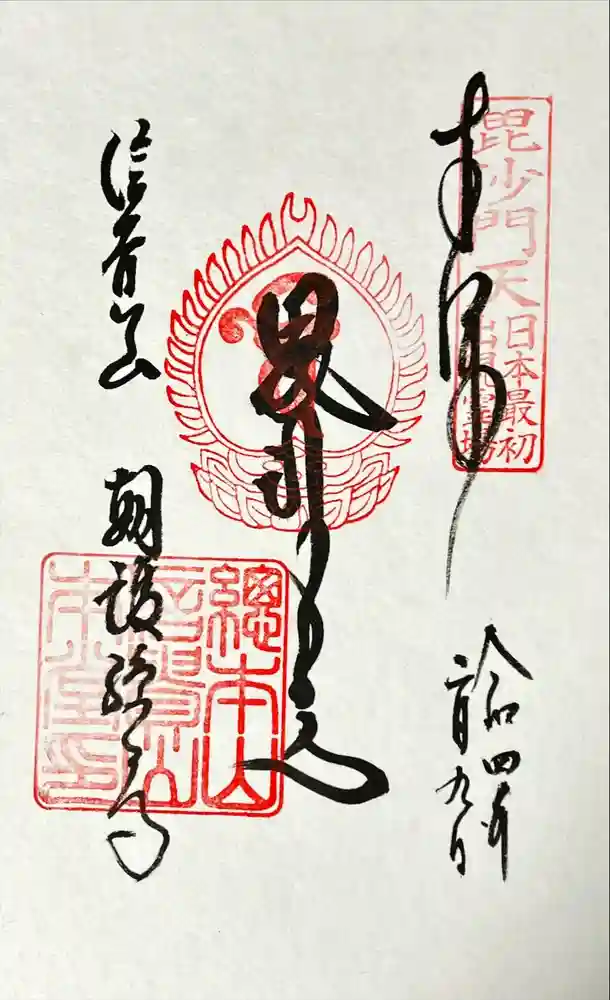 毘沙門天
日本最初
出現霊場
奉拝
令和四年
二月九日
毘沙門天
總本山
信貴山
本堂印
信貴山 朝護孫子寺